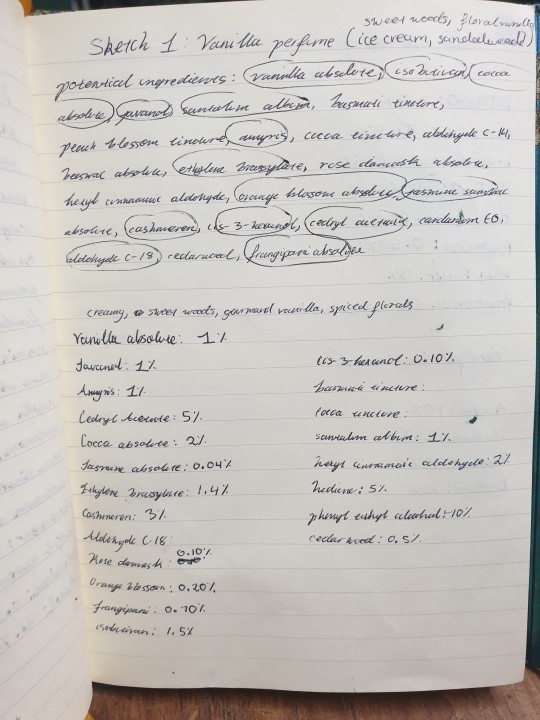 sweet woods, floral vanilla
Sketch 1: Vanilla perfume (ice cream, sandalwood)
potential ingredients: vanilla absolute, isobutivan, cocoa
absolute, javanol, santalum album, basmati tincture,
peach blossom tincture, amyris, cocoa tincture, aldehyde C-14,
beeswax absolute, ethylene brassylate, rose damask absolute,
hexyl cinnamic aldehyde, orange blossom absolute, jasmine sambac
absolute, cashmeren, cis-3-hexanol, cedryl acetate, cardamom EO,
aldehyde C-18, cedarwood, frangipani absolute
creamy, sweet woods, gourmand vanilla, spiced florals
Vanilla absolute: 1%
Javanol: 1%
Amyris: 1%
Cedryl Acetate: 5%
Cocoa absolute: 2%
Jasmine absolute: 0.04%
Ethylene Brassylate: 1.4%
Cashmeren: 3%
Aldehyde C-18:
Rose damask: 0.10%
Orange blossom: 0.20%
frangipani: 0.10%
isobutivan: 1.5%
cis-3-hexanol: 0.10%
basmati tincture:
cocoa tincture:
santalum album: 1%
hexyl cinnamic aldehyde: 2%
hedione: 5%
phenyl ethyl alcohol: 10%
cedarwood: 0.5%